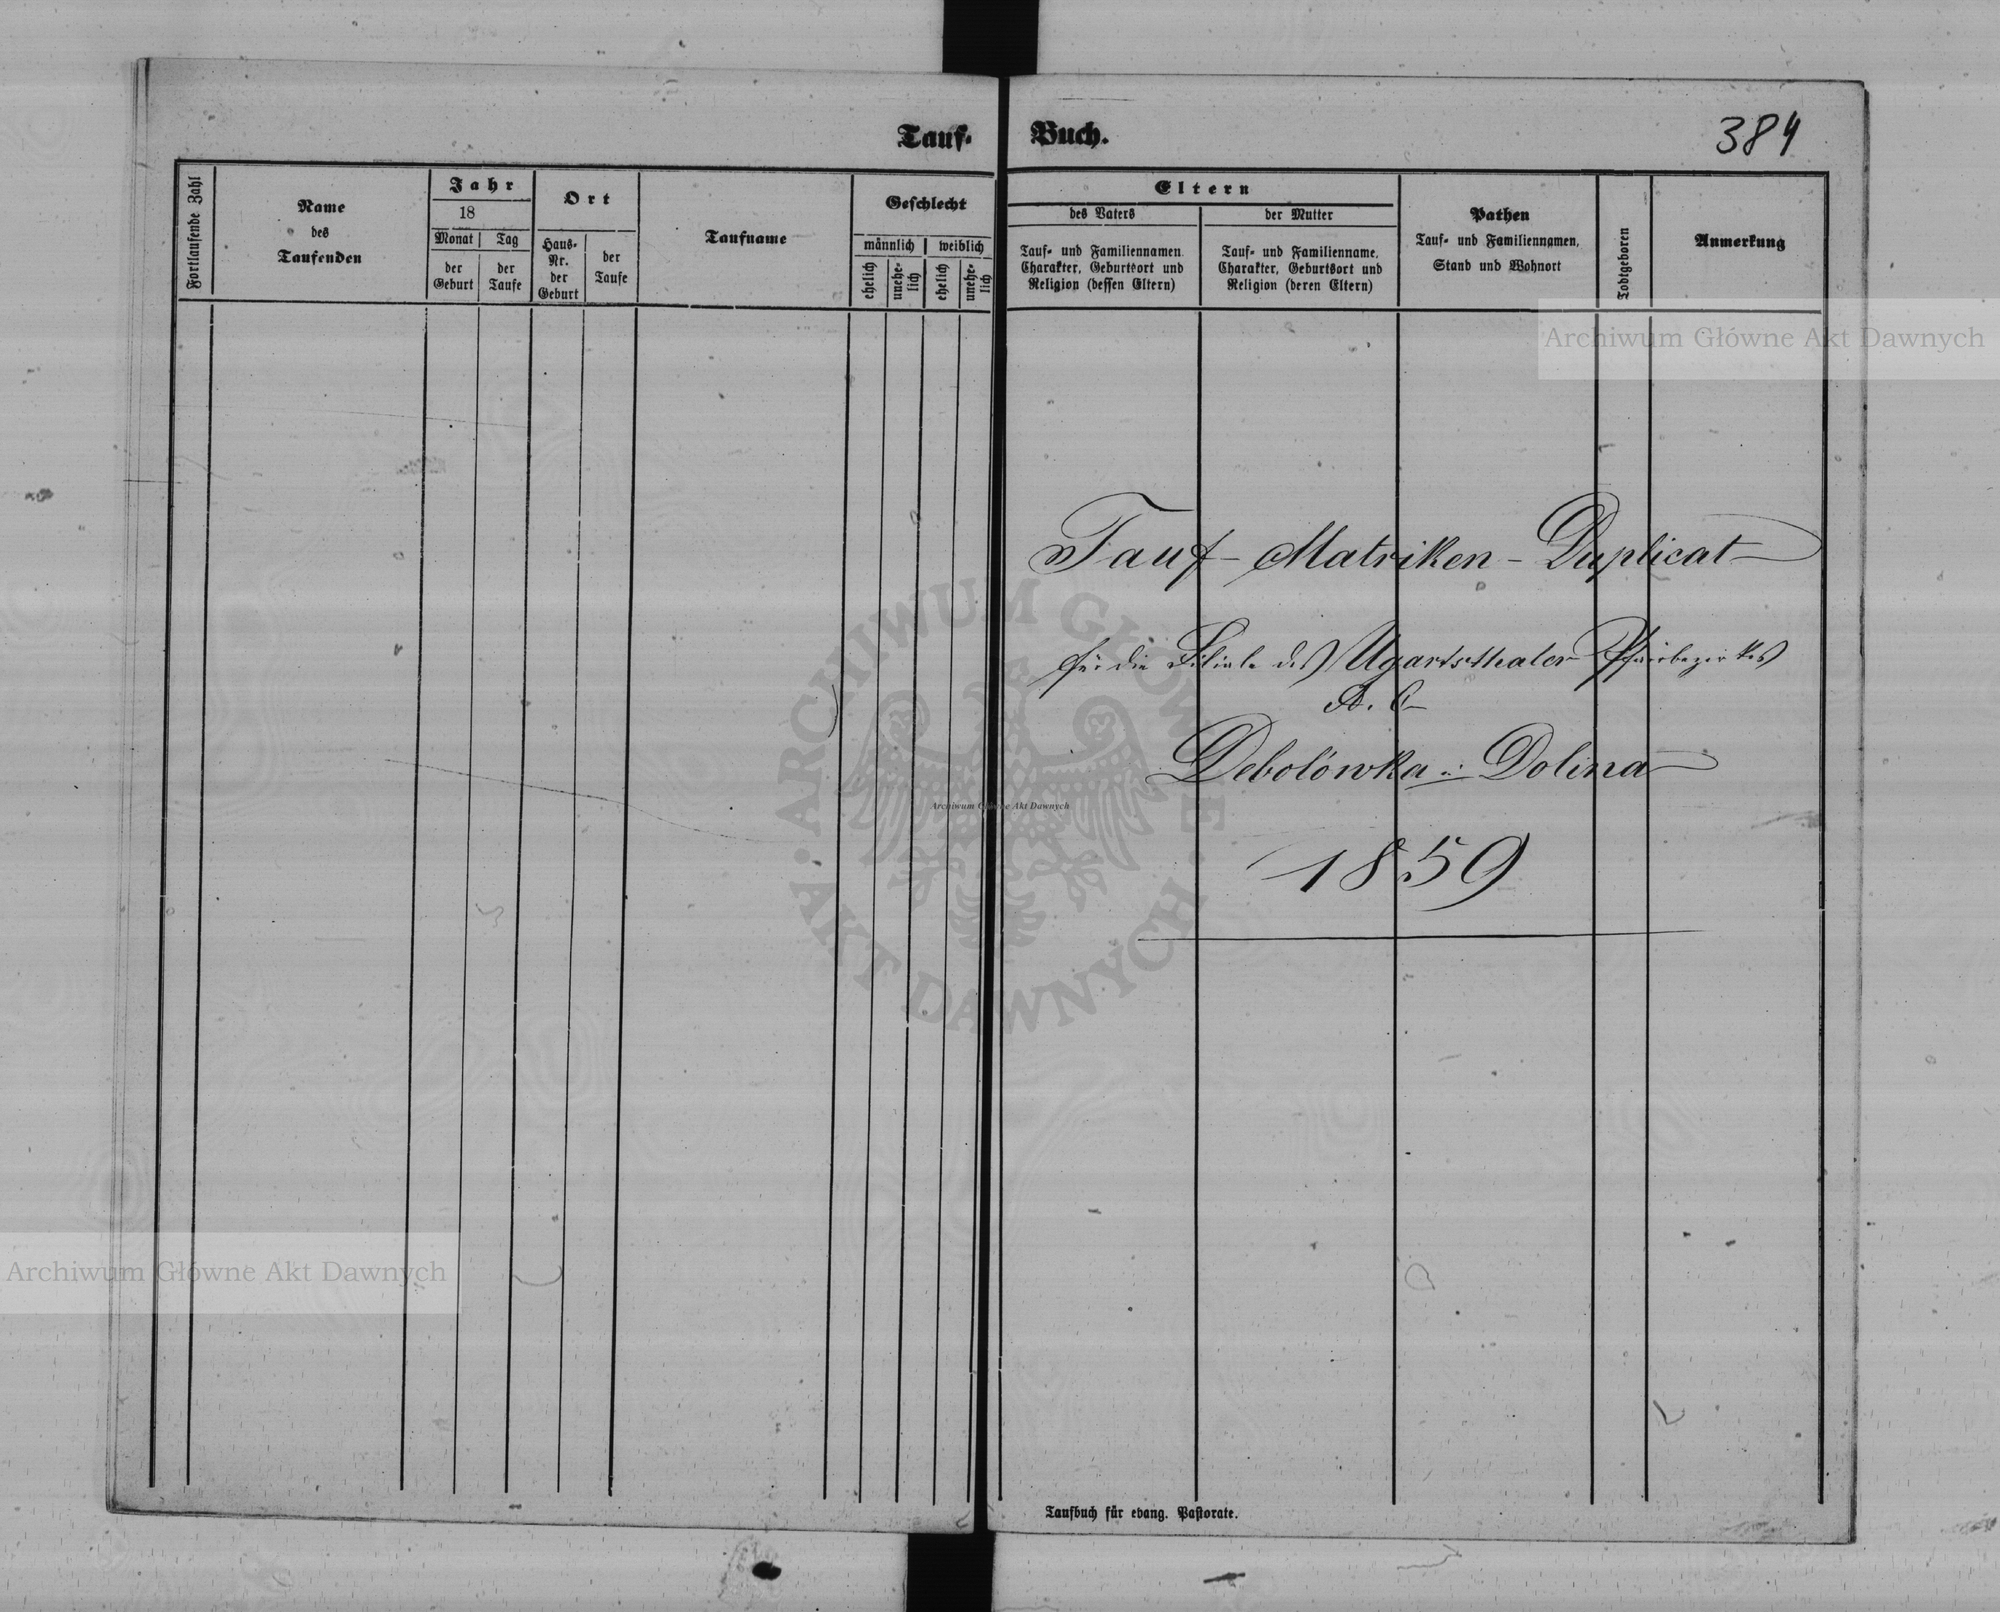 Tauf-
Buch.
384
Fortlaufende Zahl
Name
des
Taufenden
Jahr
18
Monat
der
Geburt
Tag
der
Taufe
Ort
Haus-
Nr.
der
Geburt
der
Taufe
Taufname
Geschlecht
männlich
weiblich
ehelich
unehe-
lich
ehelich
unehe-
lich
Eltern
des Vaters
Tauf- und Familiennamen,
Charakter, Geburtsort und
Religion (dessen Eltern)
der Mutter
Tauf- und Familienname,
Charakter, Geburtsort und
Religion (deren Eltern)
Pathen
Tauf- und Familiennamen,
Stand und Wohnort
Todtgeboren
Anmerkung
Archiwum Główne Akt Dawnych
Tauf-Matriken-Duplicat
für die Filiale des Ugartsthaler Pfarrbezirkes
A. C.
Debolówka : Dolina
1859
ARCHIWUM GŁÓWNE
AKT DAWNYCH
Archiwum Główne Akt Dawnych
Archiwum Główne Akt Dawnych
Taufbuch für evang. Pastorate.